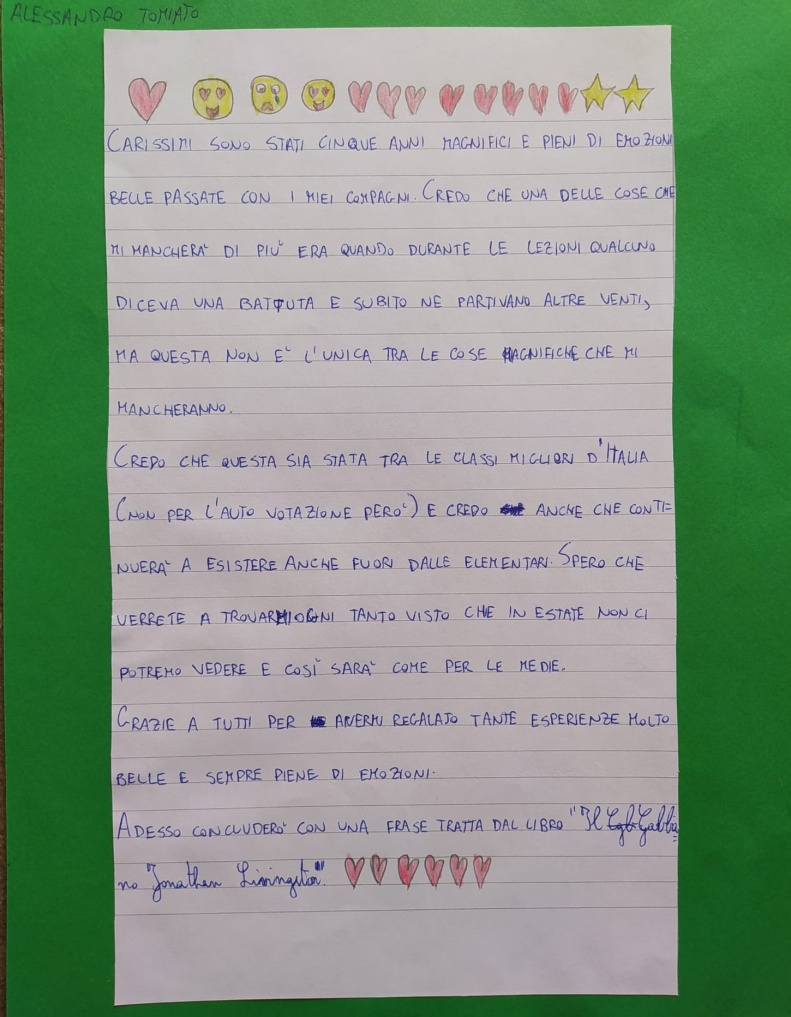 ALESSANDRO TOMIATO
CARISSIMI SONO STATI CINQUE ANNI MAGNIFICI E PIENI DI EMOZIONI
BELLE PASSATE CON I MIEI COMPAGNI. CREDO CHE UNA DELLE COSE CHE
MI MANCHERA' DI PIU' ERA QUANDO DURANTE LE LEZIONI QUALCUNO
DICEVA UNA BATTUTA E SUBITO NE PARTIVANO ALTRE VENTI,
MA QUESTA NON E' L'UNICA TRA LE COSE MAGNIFICHE CHE MI
MANCHERANNO.
CREDO CHE QUESTA SIA STATA TRA LE CLASSI MIGLIORI D'ITALIA
(NON PER L'AUTO VOTAZIONE PERO') E CREDO ANCHE CHE CONTI=
NUERA' A ESISTERE ANCHE FUORI DALLE ELEMENTARI. SPERO CHE
VERRETE A TROVARMI OGNI TANTO VISTO CHE IN ESTATE NON CI
POTREMO VEDERE E COSI' SARA' COME PER LE MEDIE.
GRAZIE A TUTTI PER AVERMI REGALATO TANTE ESPERIENZE MOLTO
BELLE E SEMPRE PIENE DI EMOZIONI.
ADESSO CONCLUDERO' CON UNA FRASE TRATTA DAL LIBRO "Il Gabbia=
no "Jonathan Livingston".